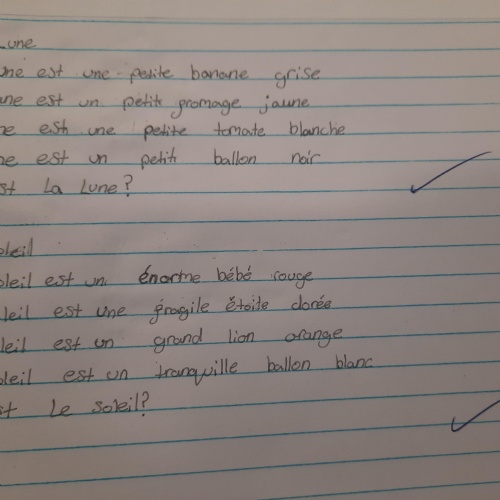 Lune
une est une petite banane grise
une est un petit fromage jaune
ne est une petite tomate blanche
ne est un petit ballon noir
st La Lune?
oleil
oleil est un énorme bébé rouge
leil est une fragile étoile dorée
leil est un grand lion orange
oleil est un tranquille ballon blanc
st Le soleil?